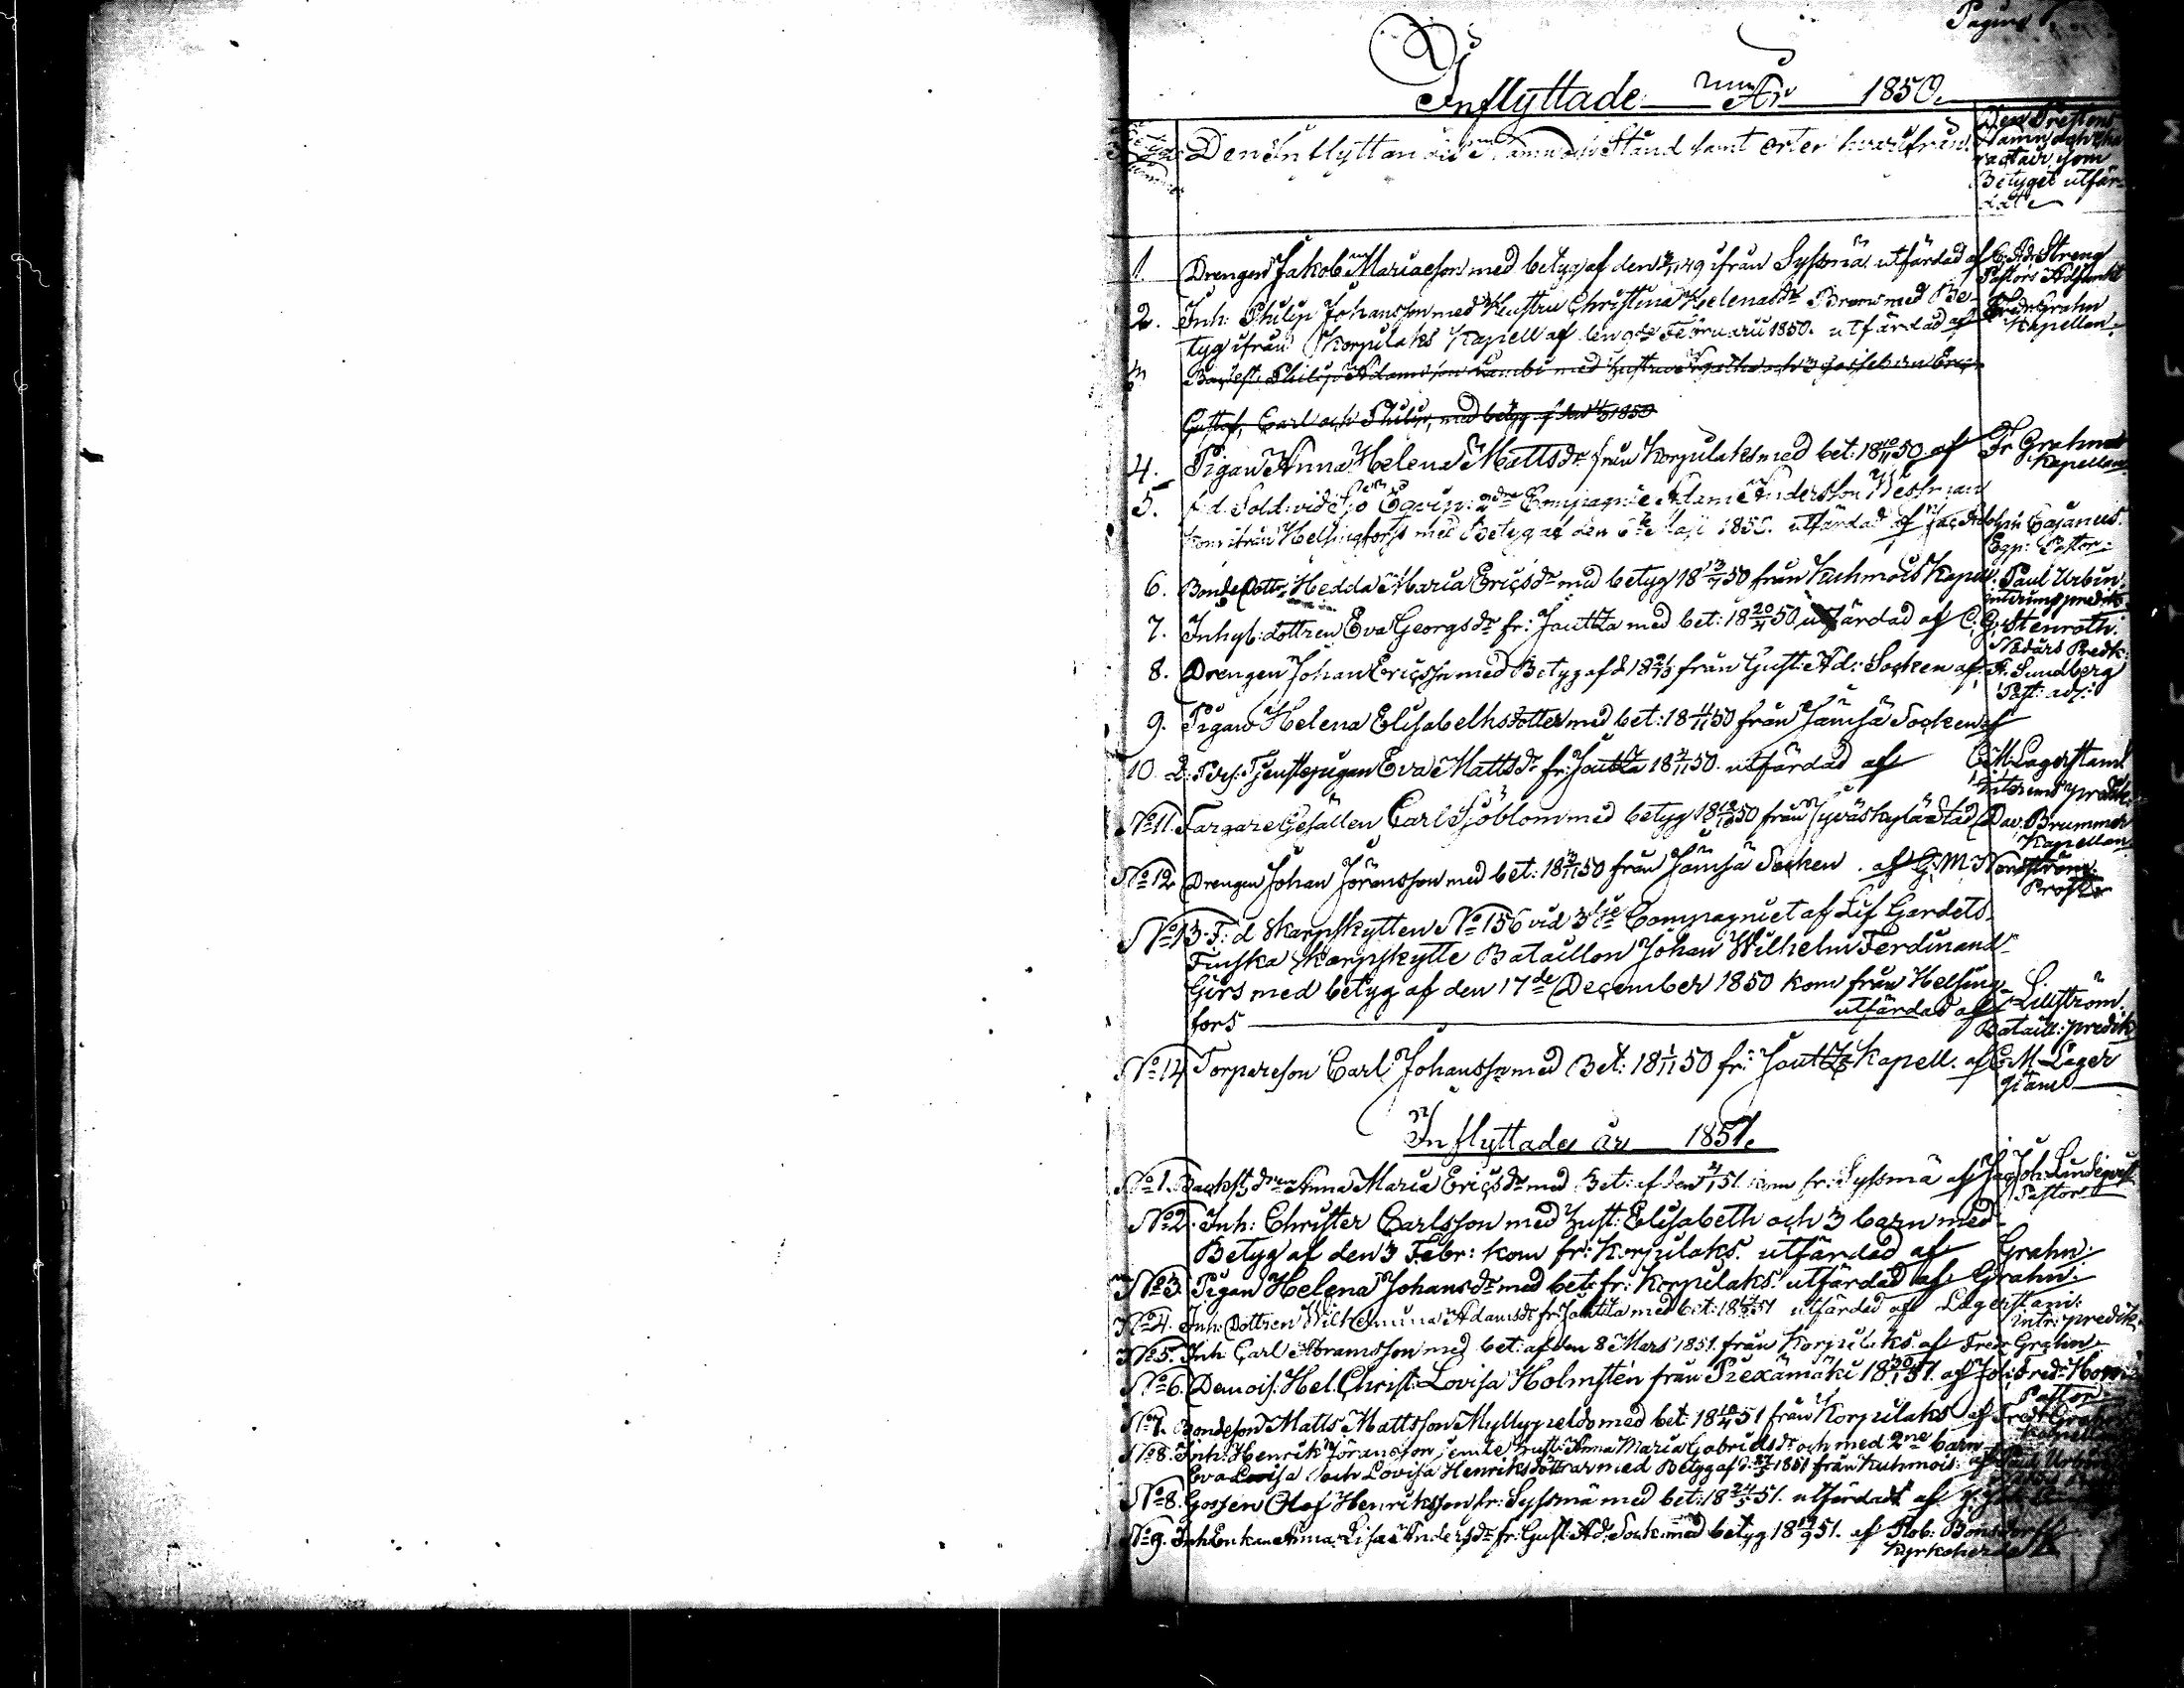 Pagina
Inflyttade År 1850.
Den Inflyttandes Namn och Stånd samt orter hvarifrån.
Den Prestens
Namn och cha
ractair, som
Betyget utfär-
dat
1. Drengen Jakob Mariaeson med betyg af den 49 ifrån Sysmä utfärdad af C. Ad. Streng
Pastors Adjunkt
2. Inh: Philip Johansson med Hustru Christina Helenasdr med Be- Fredr Grahn
tyg ifrån Korpilaks Kapell af den 9de Februarii 1850. utfärdad af Kapellan.
3 Philip Adamsson med hustru Agatha och 3 gossebarn Eric
Gustaf, Carl och Philip, med betyg af den 1850
4. Pigan Anna Helena Mattsdr från Korpilaks med bet: 18 10/11 50. af Fr Grahn
Kapellan
5. f.d. Sold: vid Sjö Equip: 2dra Compagnie Adam Andersson Westman
kom ifrån Helsingfors med Betyg af den 6te Maji 1850. utfärdad af Jac. Adolph Cajanus.
Eqp: Pastor.
6. Bonde Dottr: Hedda Maria Ericsdr med betyg 18 50 från Kuhmois Kapell. Paul Urbin
interims predik:
7. Inhys: dottren Eva Georgsdr fr: Joutta med bet: 18 20/4 50 utfärdad af C. G. Stenroth.
Nådårs Predk:
8. Drengen Johan Ericsson med Betyg af d 18 från Gust: Ad: Socken af A. Sundberg
Past: adj:
9. Pigan Helena Elisabethsdotter med bet: 18 50 från Jämsä Socken af
10. Tjenstepigan Eva Mattsdr fr: Joutta 18 50. utfärdad af C. M. Lagerstam
Interims predik:
No 11. Färgare Gesällen Carl Sjöblom med betyg 18 50 från Jyväskylä Stad Dav. Brummer
Kapellan
No 12 Drengen Johan Jöransson med bet: 18 50 från Jämsä Socken. af G. M. Nordström.
Prost
No 13. F: d Skarpskytten No 156 vid 3dje Compagniet af Lif Gardets
Finska Skarpskytte Bataillon Johan Wilhelm Ferdinand
Girs med betyg af den 17de December 1850 kom från Helsing-
fors utfärdad af Lillström.
Bataill: predik
No 14 Torpareson Carl Johansson med Bet: 18 50 fr: Joutta Kapell. af C. M. Lager
stam
Inflyttade år 1851.
No 1. Anna Maria Ericsdr med Bet: af den 51. kom fr: Sysmä af Jac Joh: Lindeqvist
Pastor
No 2. Inh: Christer Carlsson med Hust: Elisabeth och 3 barn med
Betyg af den 3 Febr: kom fr: Korpilaks. utfärdad af Grahn.
No 3. Pigan Helena Johansdr med bet: fr: Korpilaks. utfärdad af Grahn.
No 4. Inh: Dottren Wilhelmina Adamsdr fr: Joutta med bet: 18 51 utfärdad af Lagerstam:
intr: predik.
No 5. Inh: Carl Abramsson med bet: af den 8 Mars 1851. från Korpilaks. af Fredr Grahn
No 6. Demois: Hel. Christ: Lovisa Holmstén från Piexämäki 18 51. af Joh: Fredr
Pastor.
No 7. Bondeson Matts Mattsson med bet: 18 51 från Korpilaks af Fredr Grahn
Kapellan
No 8. Inh: Henrik Jöransson jemte Hust: Anna Maria Gabrielsdr och med 2ne barn
Eva Lovisa och Lovisa Henriksdöttrar med Betyg af d: 1851 från Kuhmois: af Paul Urbin
No 8. Gossen Olof Henriksson fr: Sysmä med bet: 18 24/5 51. utfärdadt af
No 9. Inh Enkan Anna Lisa Andersdr fr: Gust: Ad: Sock: med betyg 18 51. af Rob: Bonsdorff
Kyrkoherde